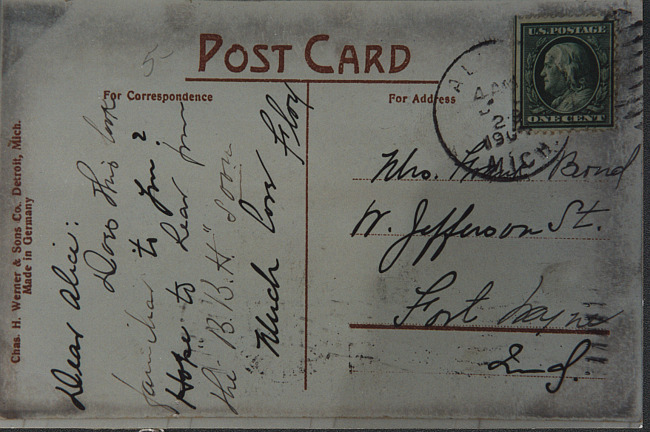 POST CARD
For Correspondence
For Address
U.S. POSTAGE
ONE CENT
AL
4 AM
MICH.
Mrs. Frank Bond
W. Jefferson St.
Fort Wayne
Ind.
Dear Alice:
Does this look
familiar to you?
Hope to hear from
the "B.B.H" soon
Much love Floy
Chas. H. Werner & Sons Co. Detroit, Mich.
Made in Germany